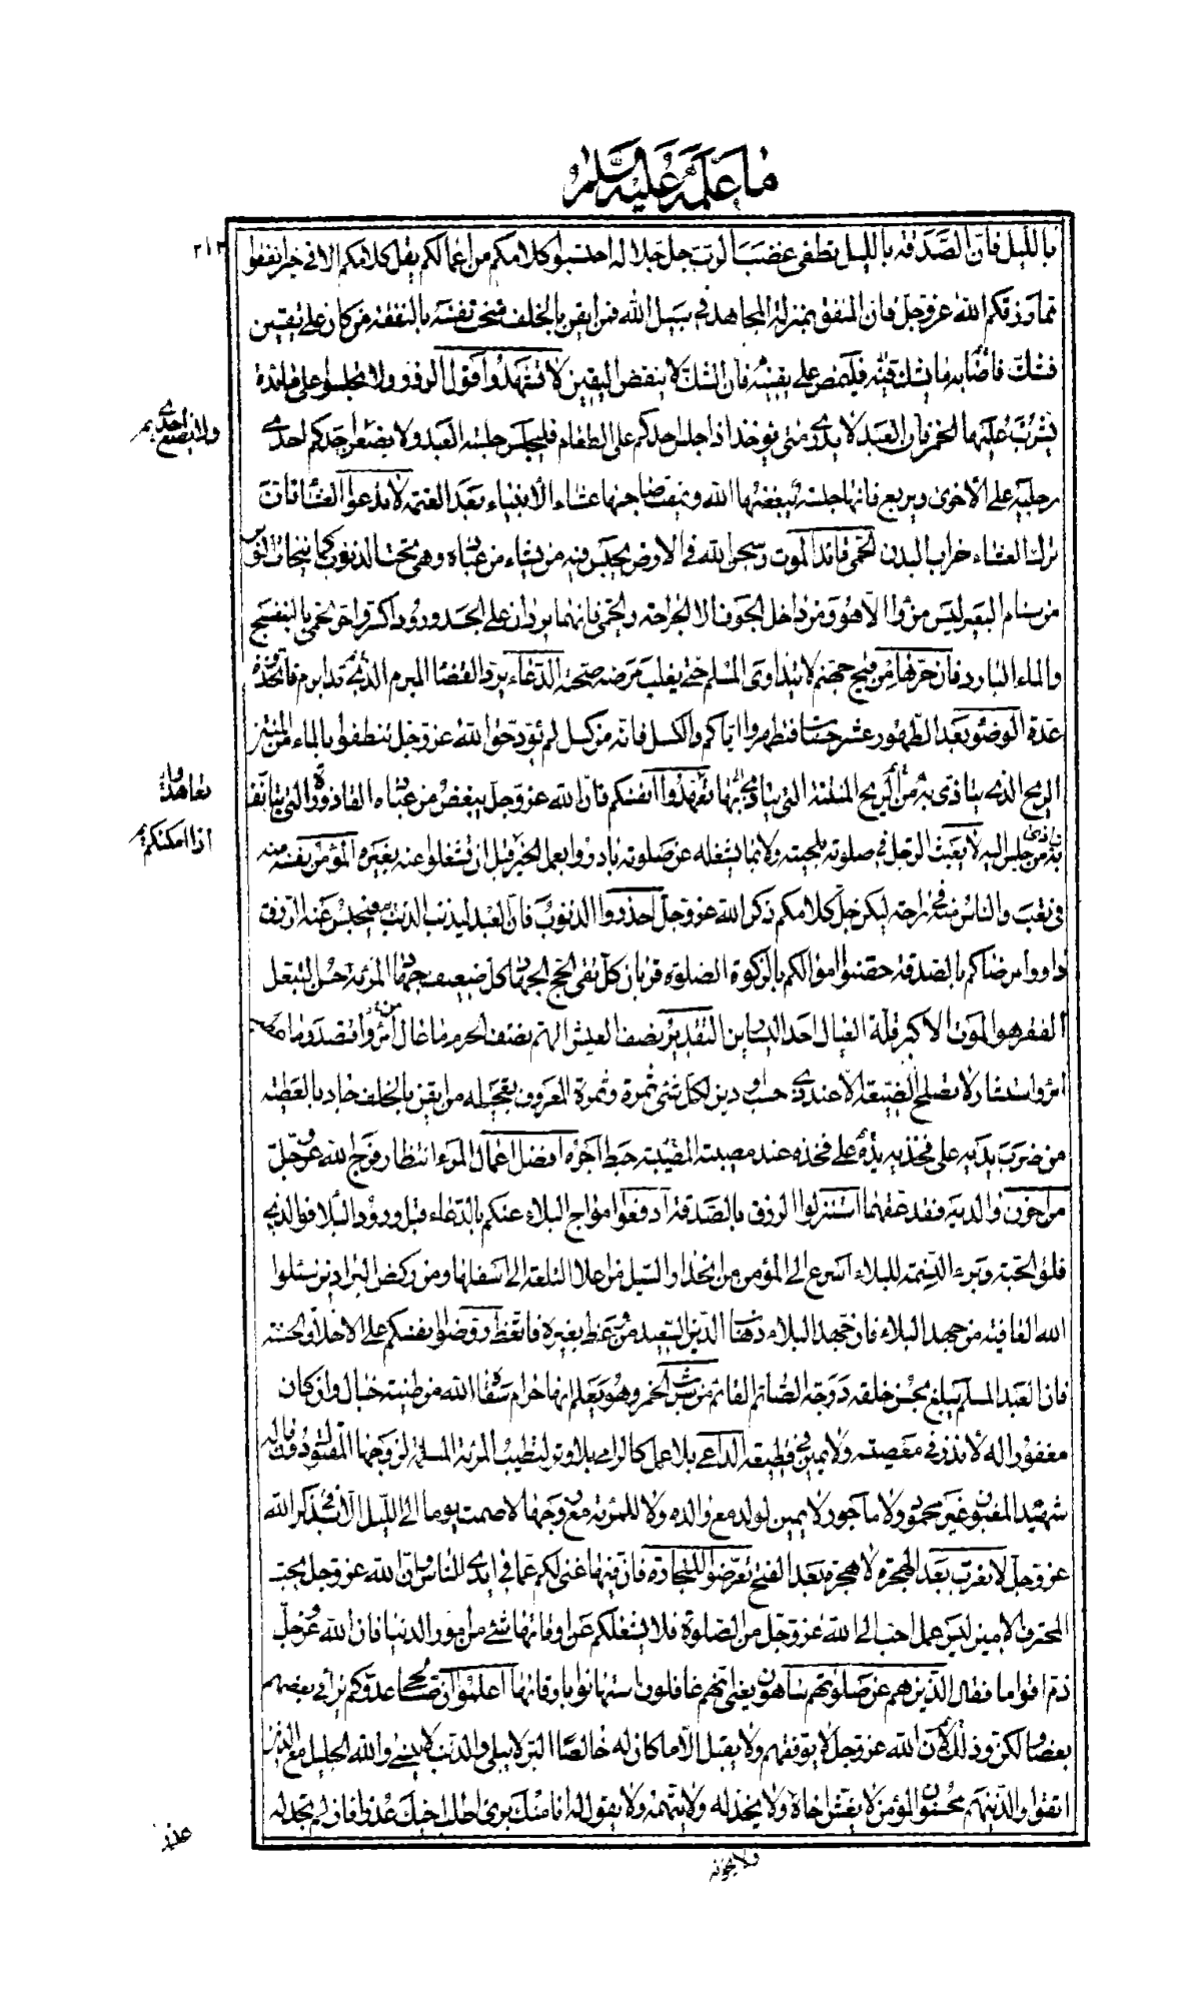 ما علمه عليه وسلم
٣١٢
بالليل فان الصدقة بالليل تطفى غضب الرب جل جلاله احتسبوا كلامكم من اعمالكم يقل كلامكم الا فى خير انفقوا
مما رزقكم الله عز وجل فان المنفق بمنزلة المجاهد فى سبيل الله فمن ايقن بالخلف سخت نفسه بالنفقة من كان على يقين
فشك فاصابه ما يشك فيه فليمض على يقينه فان الشك لا ينقض اليقين لا تشهدوا قول الزور ولا تجلسوا على مائدة
يشرب عليها الخمر فان العبد لا يدرى متى يؤخذ اذا جلس احدكم على الطعام فليجلس جلسة العبد ولا يضعن احدكم احدى
ولا يضع احدى
رجليه على الاخرى ويربع فانها جلسة يبغضها الله ويمقت صاحبها عشاء الانبياء بعد العتمة لا تدعوا العشاء فان
ترك العشاء خراب البدن الحمى قائد الموت وسجن الله فى الارض يحبس فيه من يشاء من عباده وهى تحت الذنوب كما يتحات الوبر
من سنام البعير ليس من داء الا وهو من داخل الجوف الا الجراحة والحمى فانهما يردان على الجسد ورودا اكسروا حر الحمى بالبنفسج
والماء البارد فان حرها من فيح جهنم لا يتداوى المسلم حتى يغلب مرضه صحته الدعاء يرد القضاء المبرم الذى قد ابرم فاتخذوه
عدة الوضوء بعد الطهور عشر حسنات فتطهروا اياكم والكسل فانه من كسل لم يؤد حق الله عز وجل تنظفوا بالماء من المنتن
الريح الذى يتاذى به من الريح المنتنة التى يتاذى بها تعهدوا انفسكم فان الله عز وجل يبغض من عباده القاذورة التى يتانف
تعاهدوا
به من جلس اليه لا يعبث الرجل فى صلوته بلحيته ولا بما يشغله عن صلوته بادروا بعمل الخير قبل ان تشغلوا عنه بغيره المؤمن نفسه منه
اذا امكنكم
فى تعب والناس منه فى راحة ليكن جل كلامكم ذكر الله عز وجل احذروا الذنوب فان العبد ليذنب الذنب فيحبس عنه الرزق
داووا مرضاكم بالصدقة حصنوا اموالكم بالزكوة الصلوة قربان كل تقى الحج جهاد كل ضعيف جهاد المرئة حسن التبعل
الفقر هو الموت الاكبر قلة العيال احد اليسارين التقدير نصف العيش الهم نصف الهرم ما عال امرؤ اقتصد وما
امرؤ استشار لا تصلح الصنيعة الا عند ذى حسب او دين لكل شئ ثمرة وثمرة المعروف تعجيله من ايقن بالخلف جاد بالعطية
من ضرب يديه على فخذيه يده على فخذه عند مصيبته المصيبة حبط اجره افضل اعمال المرء انتظار فرج الله عز وجل
من احزن والديه فقد عقهما استنزلوا الرزق بالصدقة ادفعوا امواج البلاء عنكم بالدعاء قبل ورود البلاء فو الذى
فلق الحبة وبرء النسمة للبلاء اسرع الى المؤمن من انحدار السيل من اعلا التلعة الى اسفلها ومن ركض البراذين سئلوا
الله العافية من جهد البلاء فان جهد البلاء ذهاب الدين السعيد من وعظ بغيره فاتعظ روضوا انفسكم على الاخلاق الحسنة
فان العبد المسلم يبلغ بحسن خلقه درجة الصائم القائم من شرب الخمر وهو يعلم انها حرام سقاه الله من طينة خبال وان كان
مغفورا له لا نذر فى معصية ولا يمين فى قطيعة الداعى بلا عمل كالرامى بلا وتر لتطيب المرئة المسلمة لزوجها المقتول دون ماله
شهيد المغبون غير محمود ولا ماجور لا يمين لولد مع والده ولا للمرئة مع زوجها لا صمت يوما الى الليل الا فى ذكر الله
عز وجل لا تعرب بعد الهجرة لا هجرة بعد الفتح تعرضوا للتجارة فان فيها غنى لكم عما فى ايدى الناس وان الله عز وجل يحب
المحترف الامين ليس عمل احب الى الله عز وجل من الصلوة فلا يشغلكم عن اوقاتها شئ من امور الدنيا فان الله عز وجل
ذم اقواما فقال الذين هم عن صلوتهم ساهون يعنى انهم غافلون استهانوا باوقاتها اعلموا ان صالحى عدوكم يرائى بعضهم
بعضا ولكن وذلك ان الله عز وجل لا يوفقهم ولا يقبل الا ما كان له خالصا البر لا يبلى والذنب لا ينسى والله الجليل مع الذين
اتقوا والذين هم محسنون المؤمن لا يغش اخاه ولا يخذله ولا يتهمه ولا يقول له انا منك برئ اطلب لاخيك عذرا فان لم تجد له
ولا يخونه
عذرا